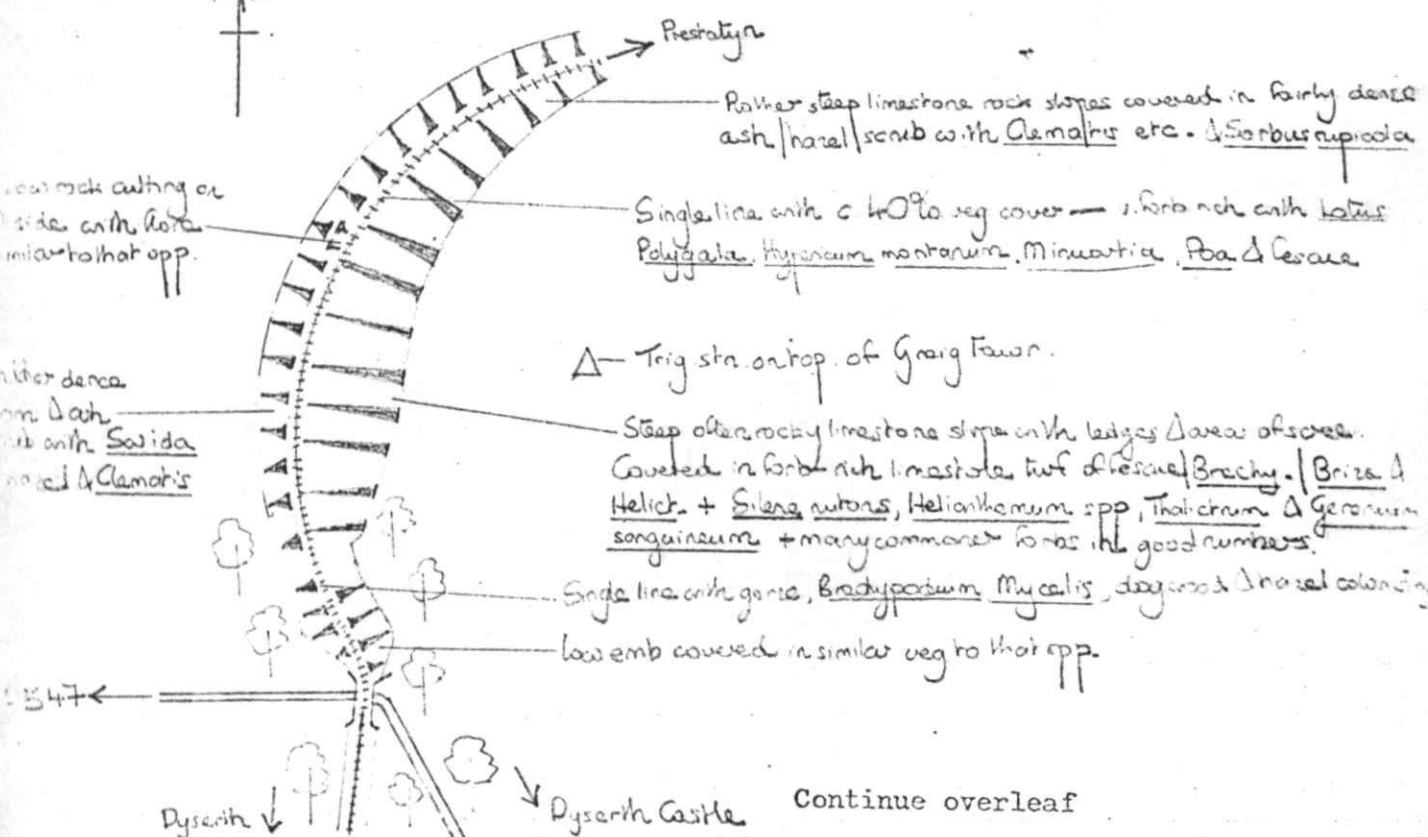 Prestatyn
Rather steep limestone rock slopes covered in fairly dense
ash/hazel/scrub with Clematis etc. & Sorbus rupicola
rock cutting on
side with flora
similar to that opp.
Single line with c 40% veg cover — forb rich with Lotus
Polygala, Hypericum montanum, Minuartia, Poa & fescue
Δ — Trig stn. on top of Graig Fawr.
dense
& ash
with
& Clematis
Steep often rocky limestone slope with ledges & areas of scree.
Covered in forb rich limestone turf of fescue/Brachy./Briza &
Helict. + Silene nutans, Helianthemum spp, Thalictrum & Geranium
sanguineum + many commoner forbs in good numbers.
Single line with gorse, Brachypodium Mycelis, dogwood & hazel colonising
low emb covered in similar veg to that opp.
547
Dyserth
Dyserth Castle
Continue overleaf